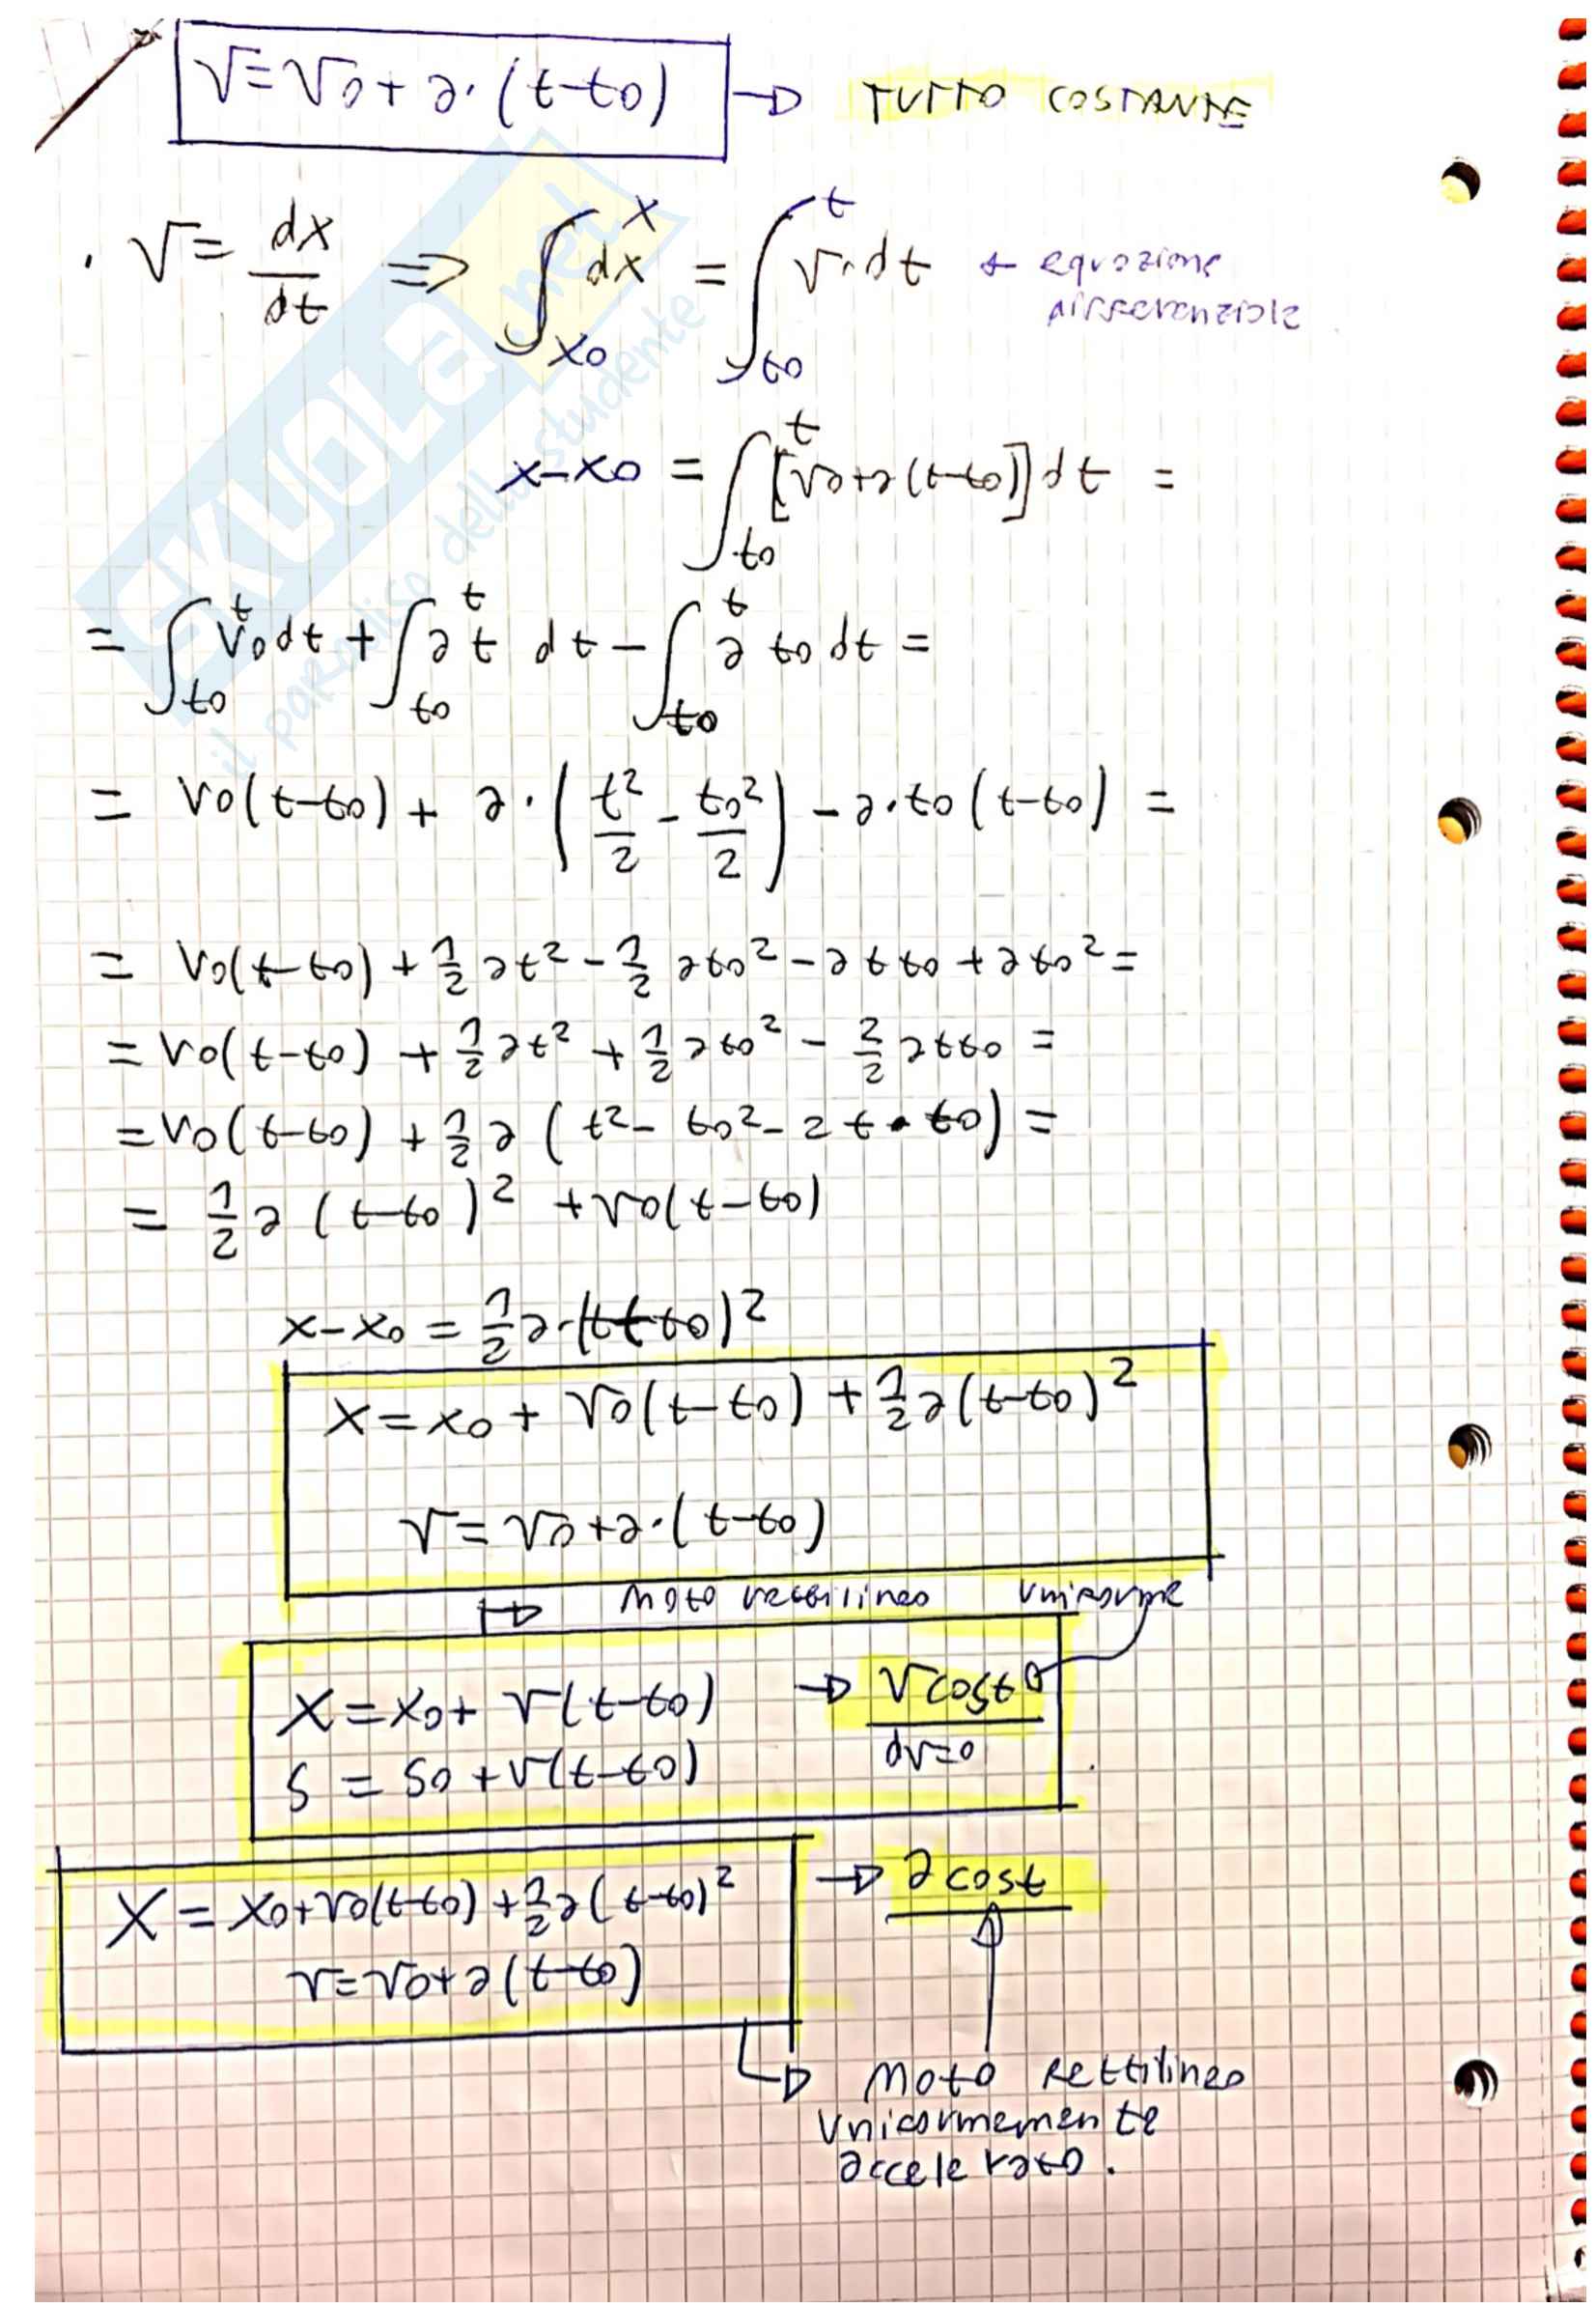 v = v0 + a · (t-t0) → TUTTO COSTANTE
· v = dx/dt ⇒ ∫_{x0}^{x} dx = ∫_{t0}^{t} v · dt ← equazione
differenziale
x-x0 = ∫_{t0}^{t} [v0+a(t-t0)] dt =
= ∫_{t0}^{t} v0 dt + ∫_{t0}^{t} a t dt - ∫_{t0}^{t} a t0 dt =
= v0(t-t0) + a · (t²/2 - t0²/2) - a · t0 (t-t0) =
= v0(t-t0) + 1/2 at² - 1/2 at0² - a t t0 + a t0² =
= v0(t-t0) + 1/2 at² + 1/2 at0² - 2/2 a t t0 =
= v0(t-t0) + 1/2 a (t² - t0² - 2 t · t0) =
= 1/2 a (t-t0)² + v0(t-t0)
x-x0 = 1/2 a · (t-t0)²
x = x0 + v0(t-t0) + 1/2 a(t-t0)²
v = v0 + a · (t-t0)
↦ Moto rettilineo uniforme
x = x0 + v(t-t0) → v cost
s = s0 + v(t-t0) dv=0
x = x0+v0(t-t0) + 1/2 a(t-t0)² → a cost
v = v0+a(t-t0)
↳ Moto Rettilineo
Uniformemente
accelerato.
SKUOLA.net
il paradiso dello studente